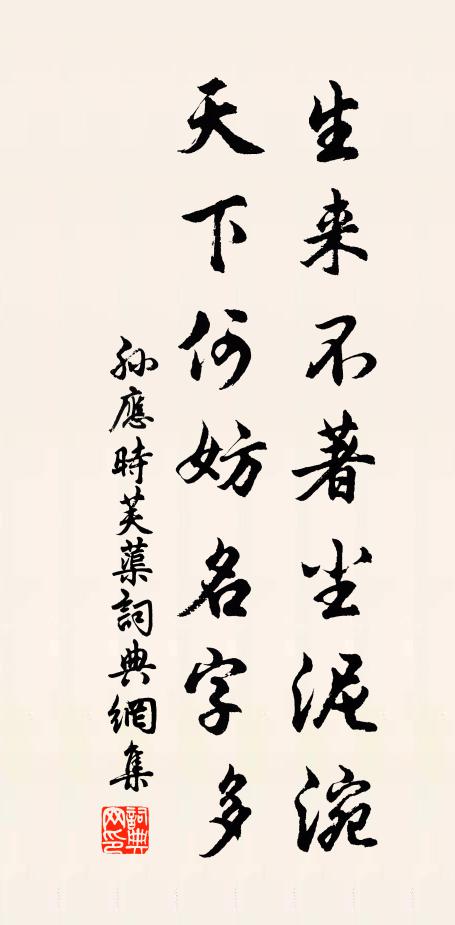 生来不著尘泥涴
天下何妨名字多
孫應時芙蕖詞典網集
詞典網印